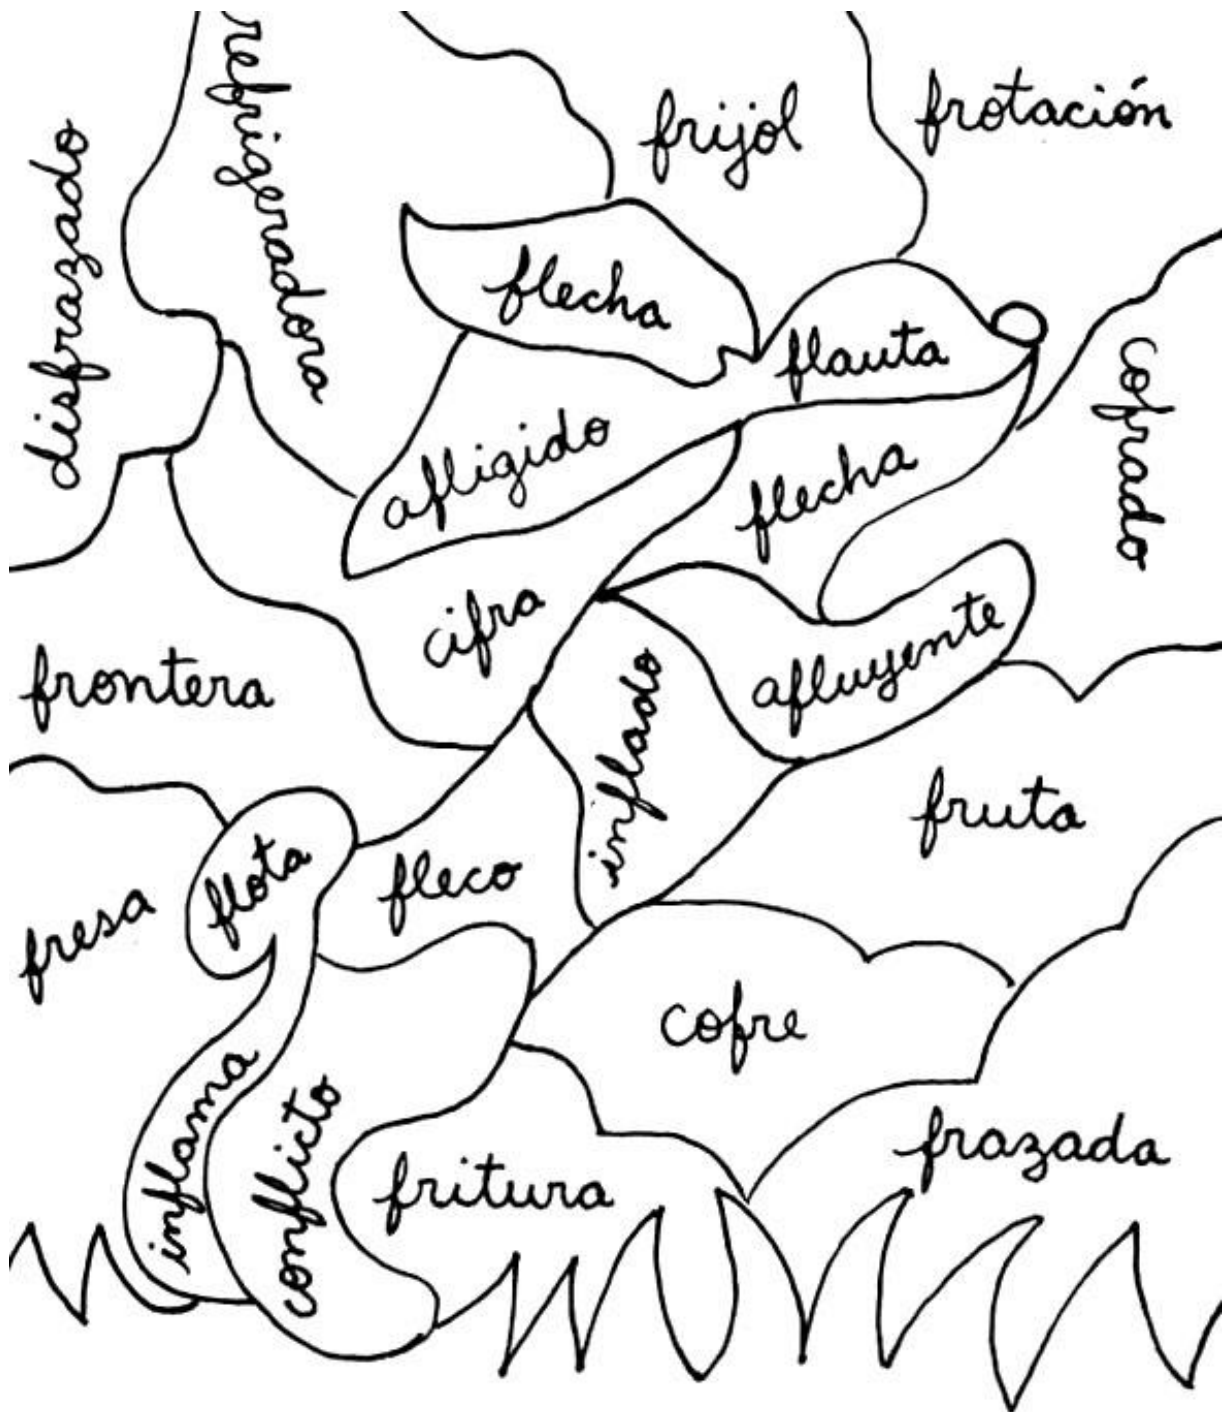 refrigeradora
frijol
frotación
disfrazado
flecha
flauta
cofrado
afligido
flecha
cifra
afluyente
frontera
inflado
fruta
flota
fleco
fresa
cofre
inflama
conflicto
fritura
frazada